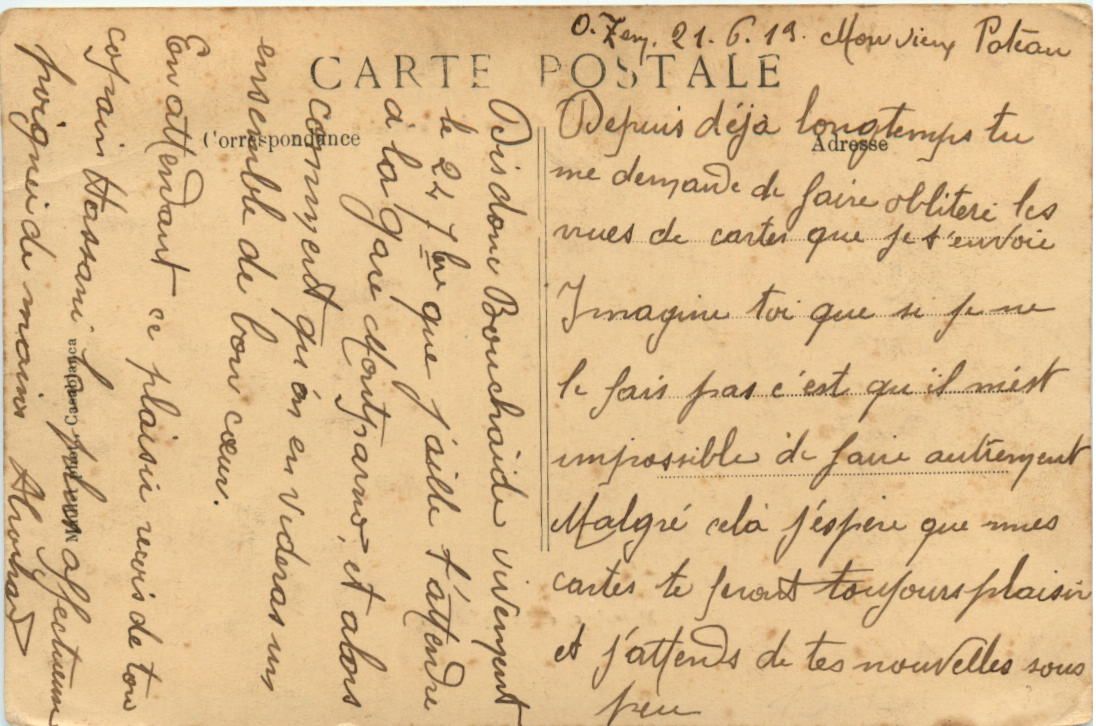 O. Zem. 21.6.19. Mon vieux Poteau
CARTE POSTALE
Correspondance
Adresse
Depuis déjà longtemps tu
me demande de faire oblitere les
vues de cartes que je t'envoie
Imagine toi que si je ne
le fais pas c'est qu'il m'est
impossible de faire autrement
Malgré celà j'éspère que mes
cartes te feront toujours plaisir
et j'attends de tes nouvelles sous
peu
Dis donc Bouchaïde vivement
le 24 7bre que j'aille t'attendre
à la gare Montparno, et alors
comment qu'on en videras un
ensemble de bon cœur.
En attendant ce plaisir reçois de ton
copain Hassani la plus affectueuse
poignée de mains
Casablanca